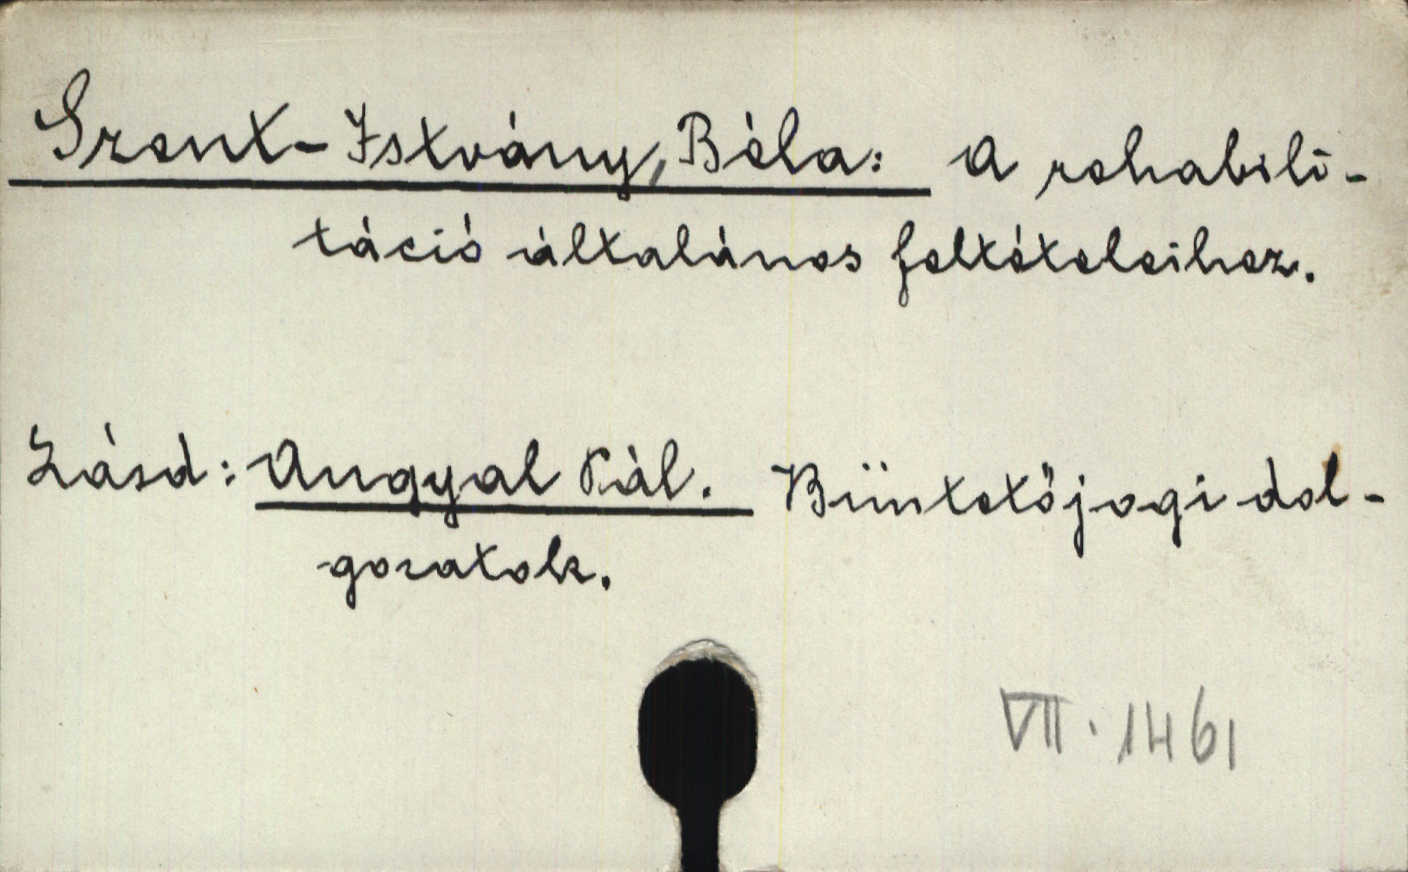 Szent-Istvány, Béla: A rehabili-
táció általános feltételeihez.
Lásd: Angyal Pál. Büntetőjogi dol-
gozatok.
VII. 1461